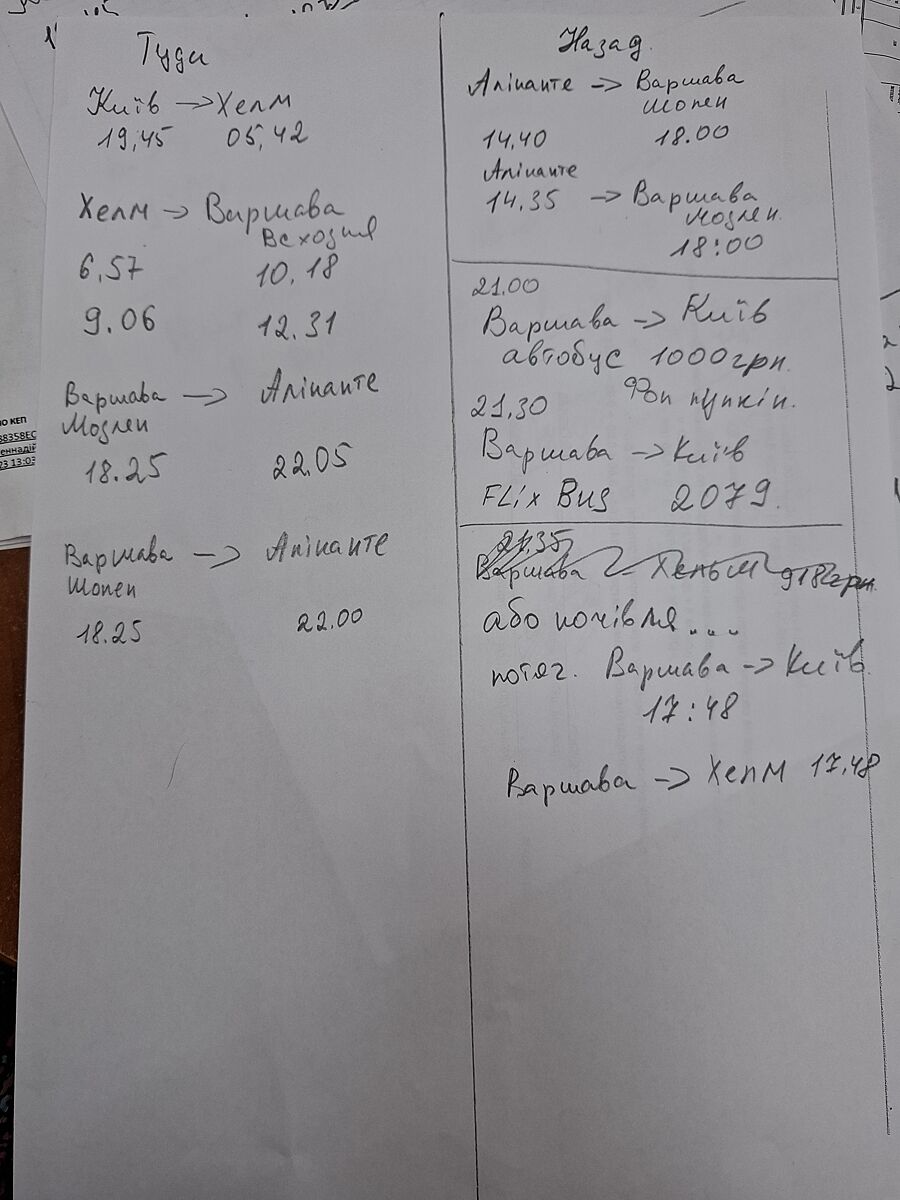 Туди
Київ → Хелм
19,45 05,42
Хелм → Варшава
Всходня
6,57 10,18
9.06 12.31
Варшава → Аліканте
Модлен
18.25 22.05
Варшава → Аліканте
Шопен
18.25 22.00
Назад.
Аліканте → Варшава
Шопен
14,40 18.00
Аліканте
14,35 → Варшава
Модлен.
18:00
21.00
Варшава → Київ
автобус 1000грн.
21,30
Варшава → Київ
FLix Bus 2079.
21,35
Варшава – Хельм 918грн.
або ночівля...
потяг. Варшава → Київ.
17:48
Варшава → Хелм 17,48
ЮКЕП
38358EC
еннадій
23 13:03